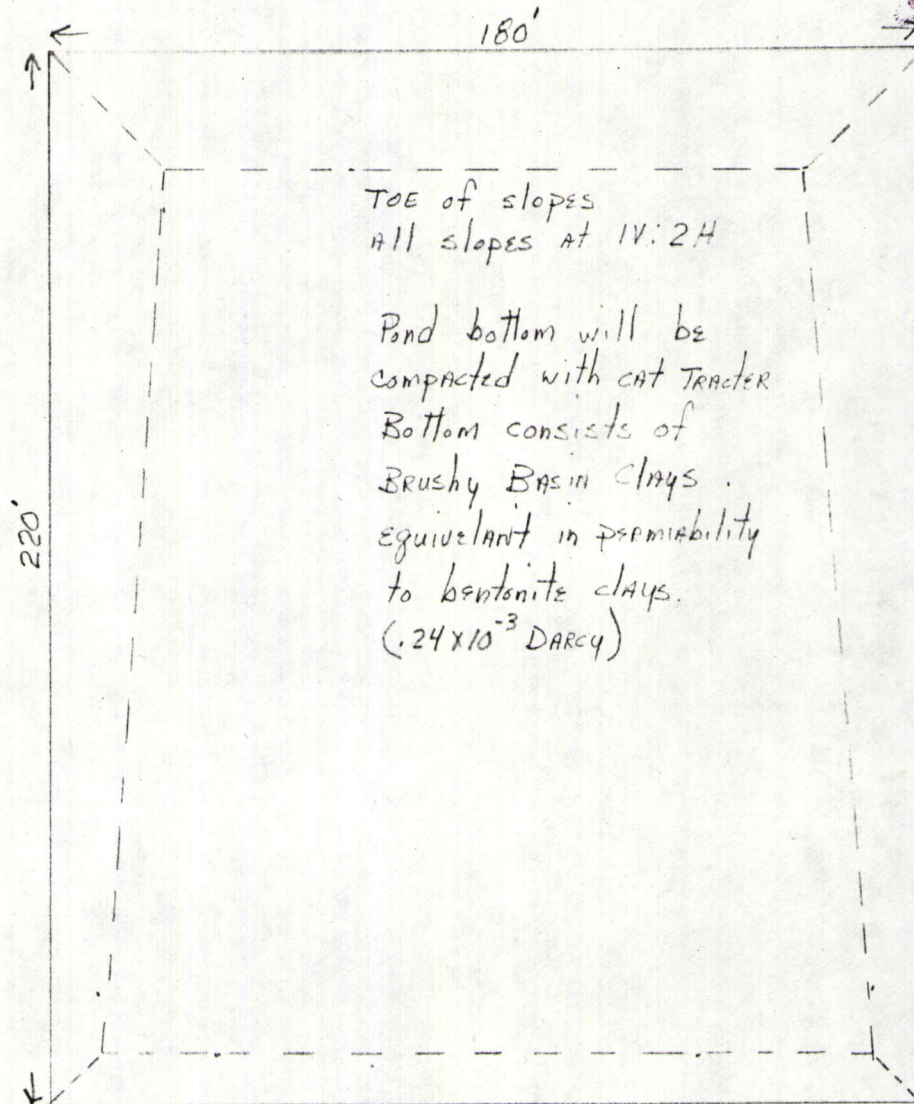 180'
TOE of slopes
All slopes At 1V:2H
Pond bottom will be
compacted with CAT TRACTER
Bottom consists of
BRUShy BASin Clays.
equivelant in permiability
to bentonite clays.
(.24x10⁻³ DARCY)
220'